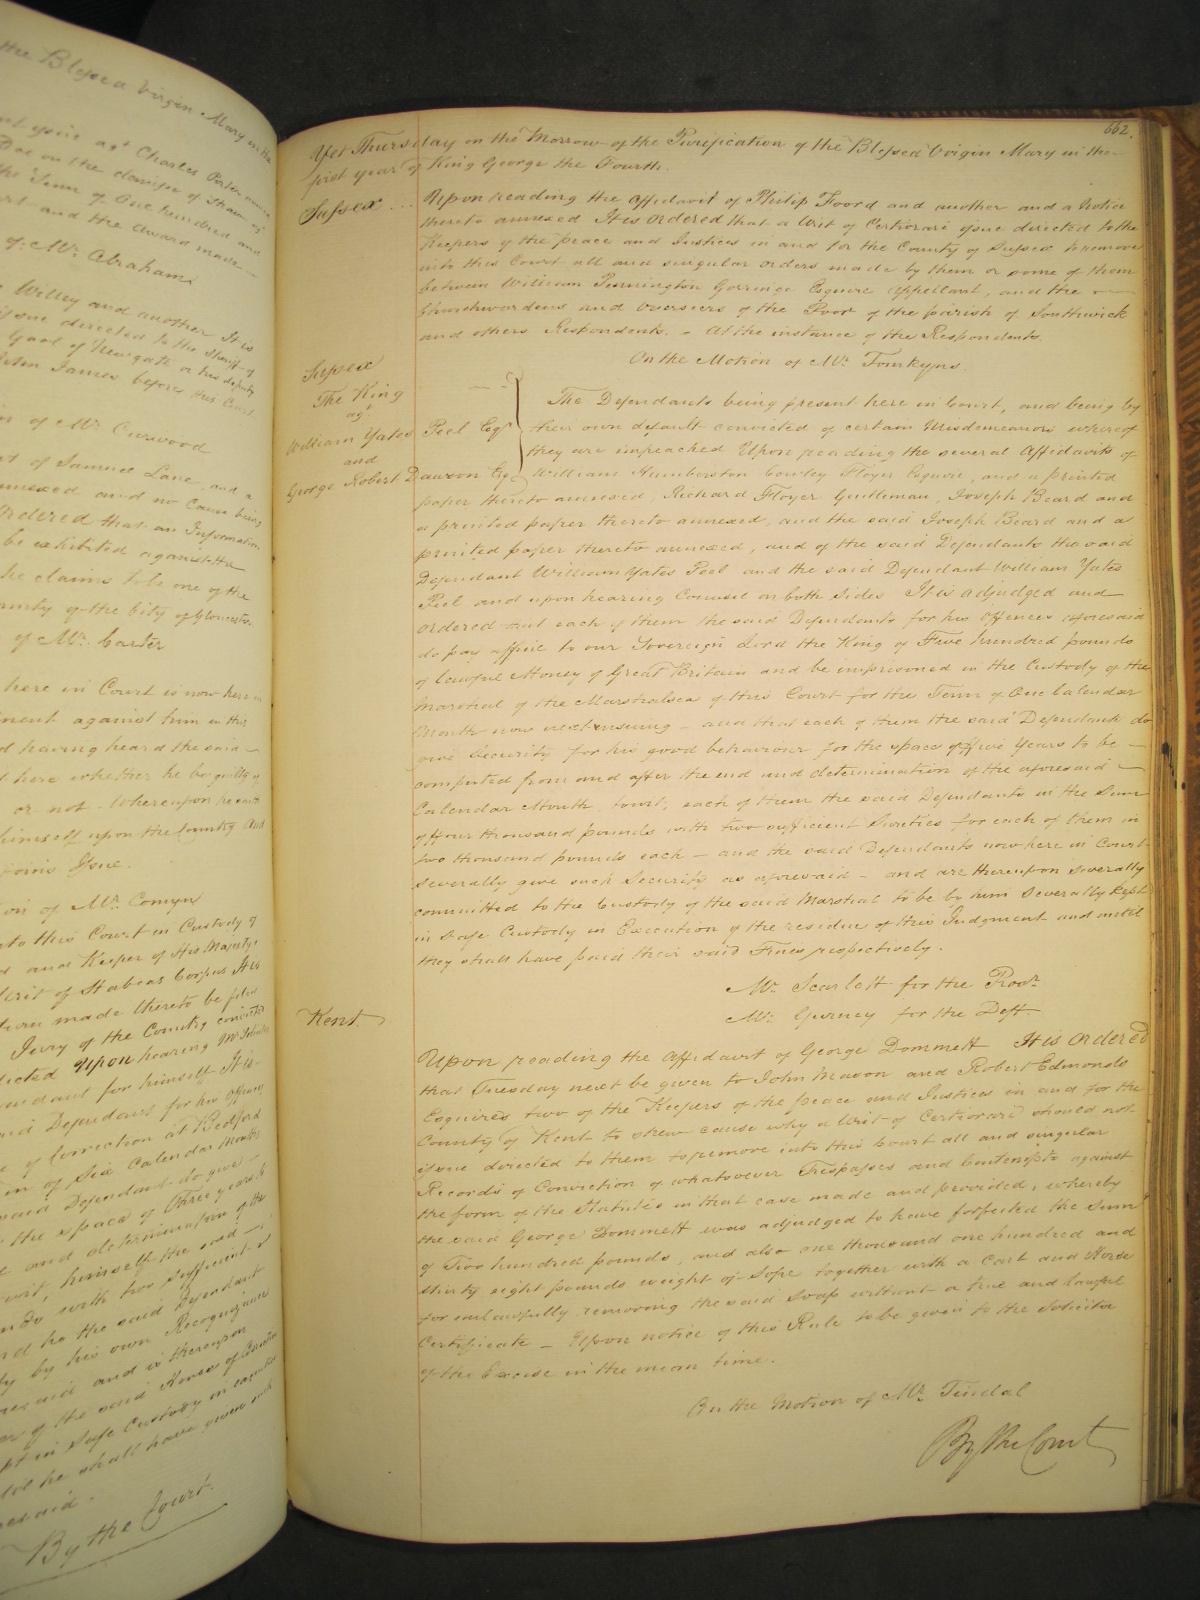 the Blessed Virgin Mary in the
agt Charles Porter
Doe on the demise of
the Term of One hundred and
and the Award made
of Mr. Abraham
Willey and another It is
issue directed to the Sheriff of
Gaol of Newgate or his deputy
James before this Court
of Mr. Curwood
of Samuel Lane and a
annexed and no Cause being
Ordered that an Information
be exhibited against the
he claims to be one of the
County of the City of Gloucester
of Mr. Carter
here in Court is now here in
against him in this
having heard the said
here whether he be guilty of
or not. Whereupon he saith
himself upon the Country And
joins Issue.
of Mr. Comyn
into this Court in Custody of
and Keeper of His Majesty's
Writ of Habeas Corpus It is
made thereto be filed
Jury of the Country convicted
Upon hearing Mr.
Defendant for himself It is
said Defendant for his Offences
of Correction at Bedford
of Six Calendar Months
said Defendant do give
the space of Three years to
and determination of the
himself the said
with two sufficient
he the said Defendant
by his own Recognizance
and is thereupon
of the said House of Correction
kept in safe Custody in execution
he shall have given such
By the Court.
662.
Yet Thursday on the Morrow of the Purification of the Blessed Virgin Mary in the
first year of King George the Fourth.
Sussex ... Upon reading the Affidavit of Philip Foord and another and a Notice
thereto annexed It is Ordered that a Writ of Certiorari issue directed to the
Keepers of the peace and Justices in and for the County of Sussex to remove
into this Court all and singular orders made by them or some of them
between William Pennington Gorringe Esquire Appellant, and the
Churchwardens and Overseers of the Poor of the parish of Southwick
and others Respondents. - At the instance of the Respondents.
On the Motion of Mr. Tomkyns.
Sussex
The King
agt
William Yates Peel Esqr
and
George Robert Dawson Esqr
The Defendants being present here in Court, and being by
their own default convicted of certain Misdemeanors whereof
they are impeached Upon reading the several Affidavits of
William Humberston Cawley Floyer Esquire, and a printed
paper thereto annexed, Richard Floyer Gentleman, Joseph Beard and
a printed paper thereto annexed, and the said Joseph Beard and a
printed paper thereto annexed, and of the said Defendants the said
Defendant William Yates Peel and the said Defendant William Yates
Peel and upon hearing Counsel on both sides It is adjudged and
Ordered that each of them the said Defendants for his Offences aforesaid
do pay a fine to our Sovereign Lord the King of Five hundred pounds
of lawful Money of Great Britain and be imprisoned in the Custody of the
Marshal of the Marshalsea of this Court for the Term of One Calendar
Month now next ensuing - and that each of them the said Defendants do
give Security for his good behaviour for the space of five Years to be
computed from and after the end and determination of the aforesaid
Calendar Month, towit, each of them the said Defendants in the Sum
of four thousand pounds with two sufficient Sureties for each of them in
two thousand pounds each - and the said Defendants now here in Court
severally give such Security as aforesaid - and are thereupon severally
committed to the Custody of the said Marshal to be by him severally kept
in safe Custody in Execution of the residue of this Judgment and until
they shall have paid their said Fines respectively.
Mr. Scarlett for the Prosr
Mr. Gurney for the Deft
Kent
Upon reading the Affidavit of George Dommett It is Ordered
that Tuesday next be given to John Mason and Robert Edmonds
Esquires two of the Keepers of the peace and Justices in and for the
County of Kent to shew cause why a Writ of Certiorari should not
issue directed to them to remove into this Court all and singular
Records of Conviction of whatsoever Trespasses and Contempts against
the form of the Statutes in that case made and provided, whereby
the said George Dommett was adjudged to have forfeited the Sum
of Two hundred pounds, and also one thousand one hundred and
thirty eight pounds weight of Sope together with a Cart and Horse
for unlawfully removing the said Soap without a true and lawful
Certificate - Upon notice of this Rule to be given to the Solicitor
of the Excise in the mean time.
On the Motion of Mr. Tindal
By the Court